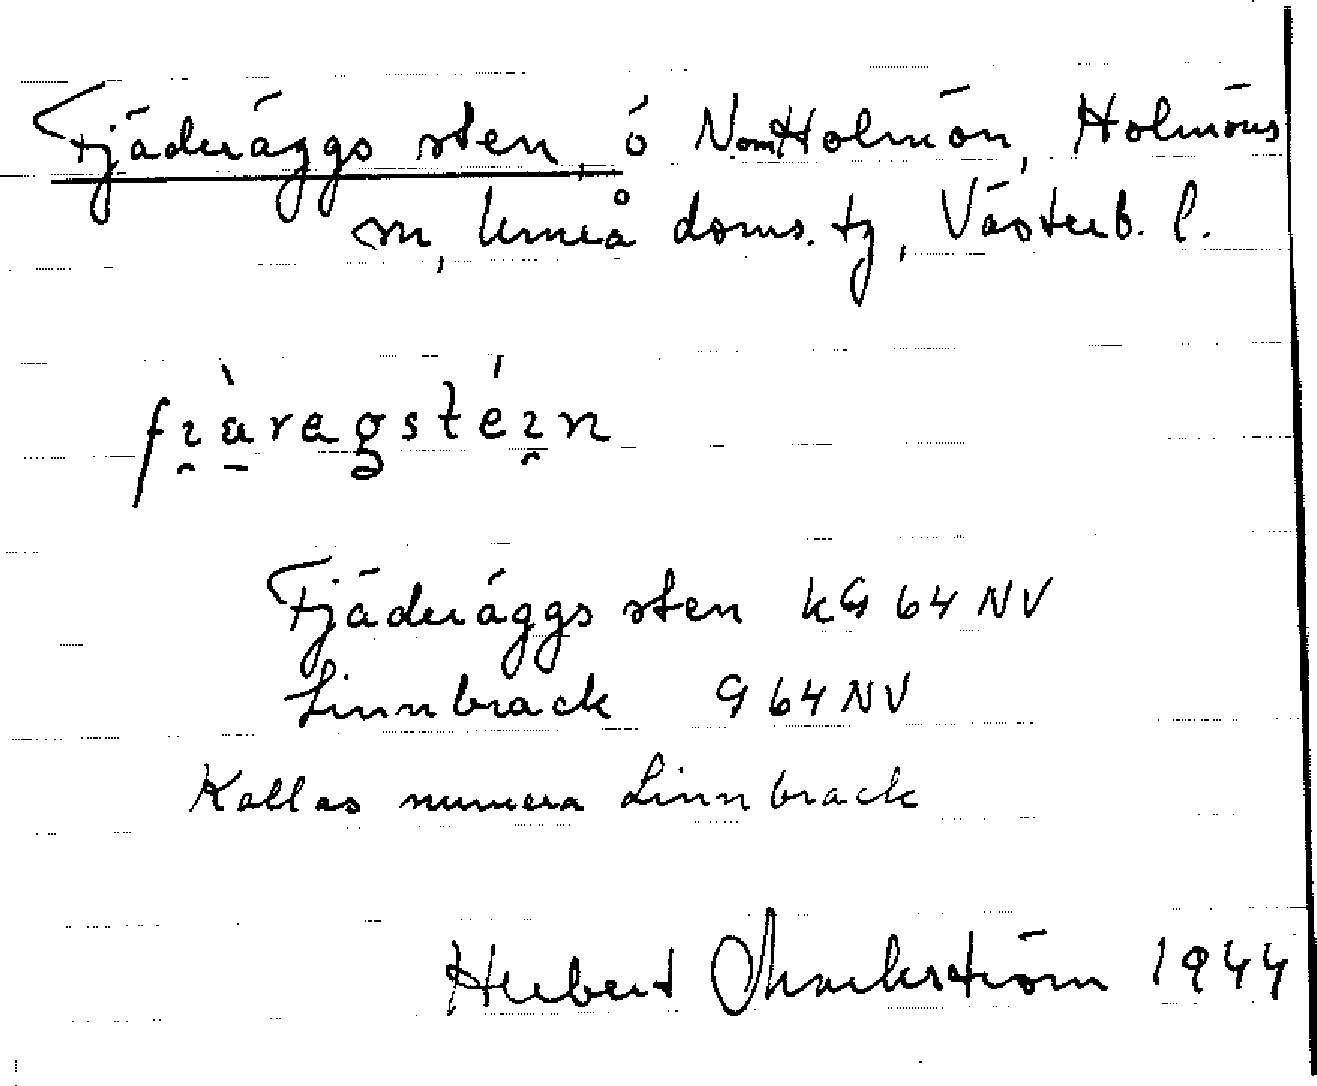 Fjäderäggs sten, ö NomHolmön, Holmöns
sn, Umeå doms. tg, Västerb. l.
fɪ̯a̱ragstéɪ̯n
Fjäderäggs sten kG 64 NV
Linnbrack G 64 NV
Kallas numera Linnbrack
Herbert Markström 1944